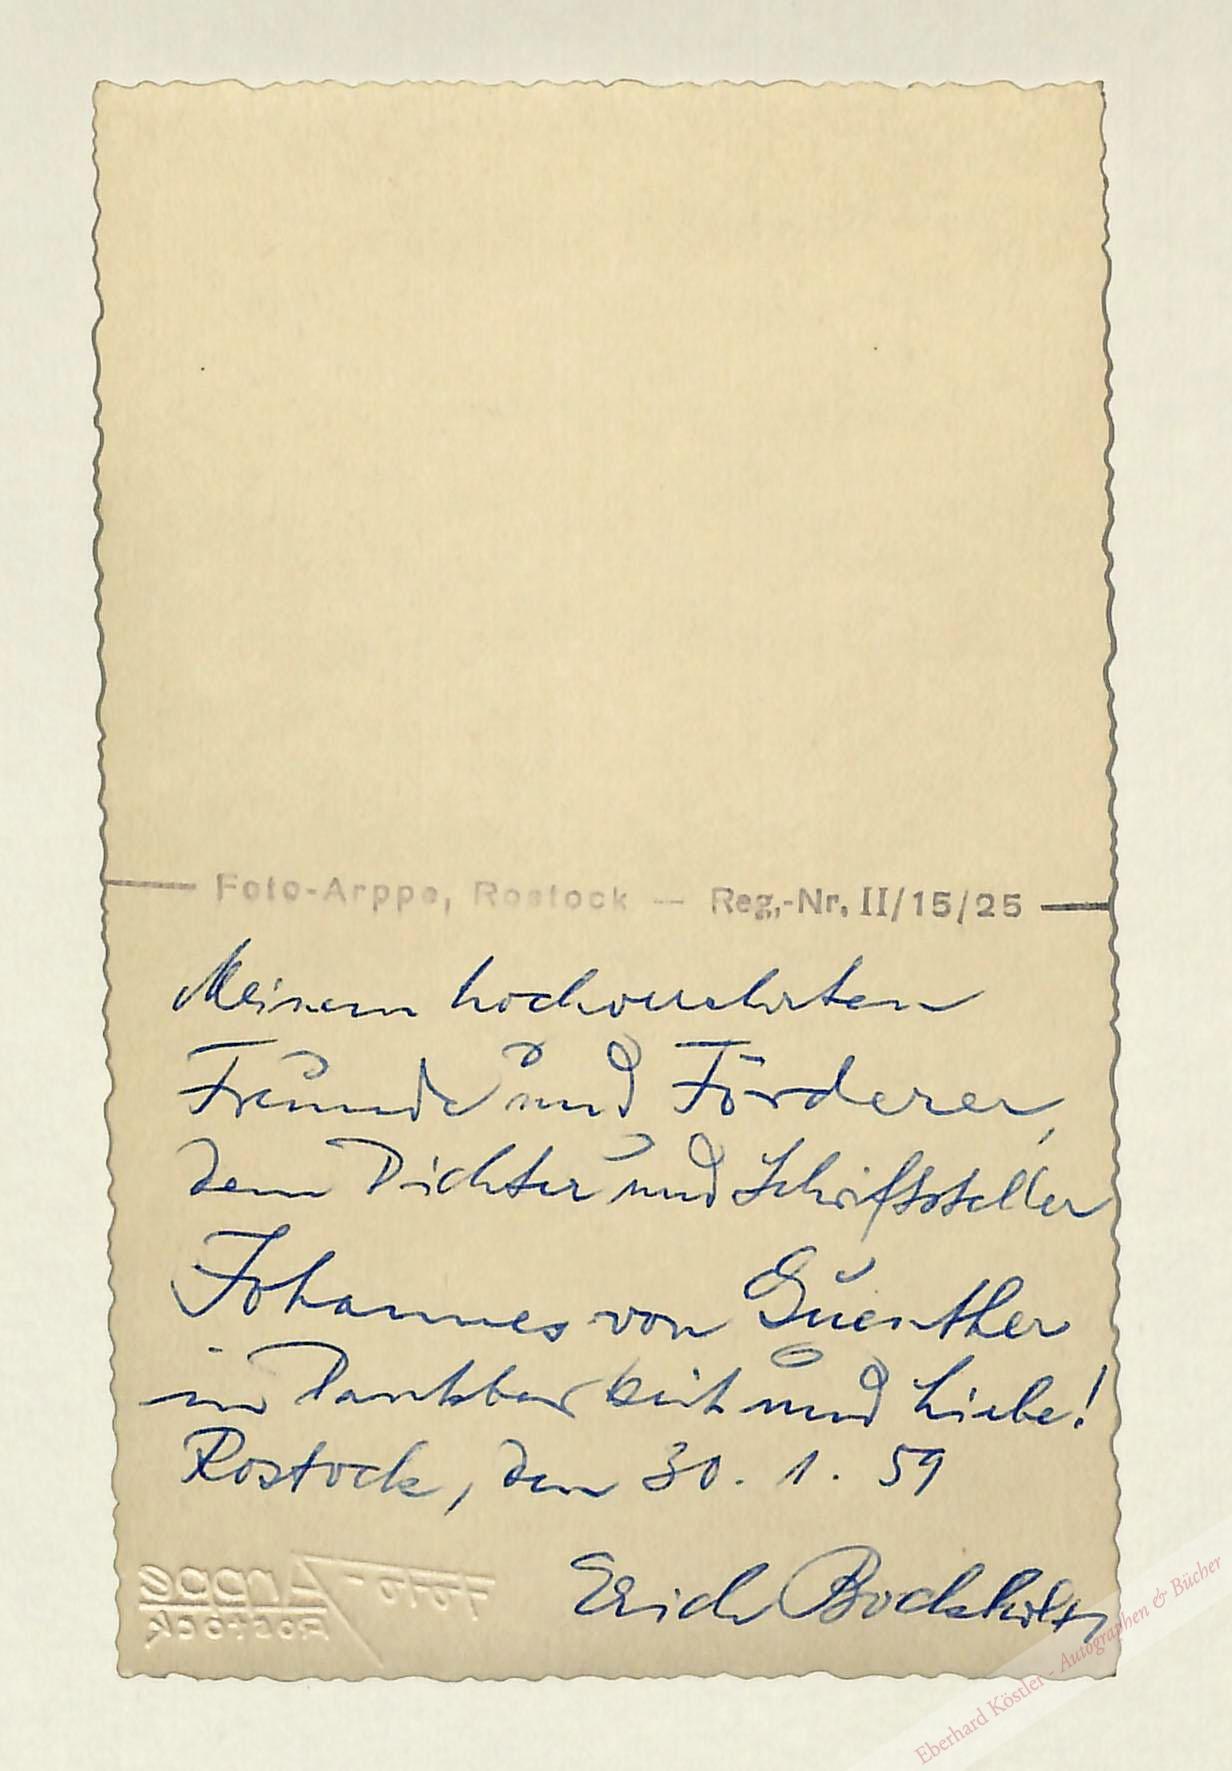 Foto-Arppe, Rostock — Reg.-Nr. II/15/25
Meinem hochverehrten
Freunde und Förderer,
dem Dichter und Schriftsteller
Johannes von Guenther
in Dankbarkeit und Liebe!
Rostock, den 30. 1. 59
Erich Bockholtz
Foto-Arppe
ROSTOCK
Eberhard Köstler - Autographen & Bücher